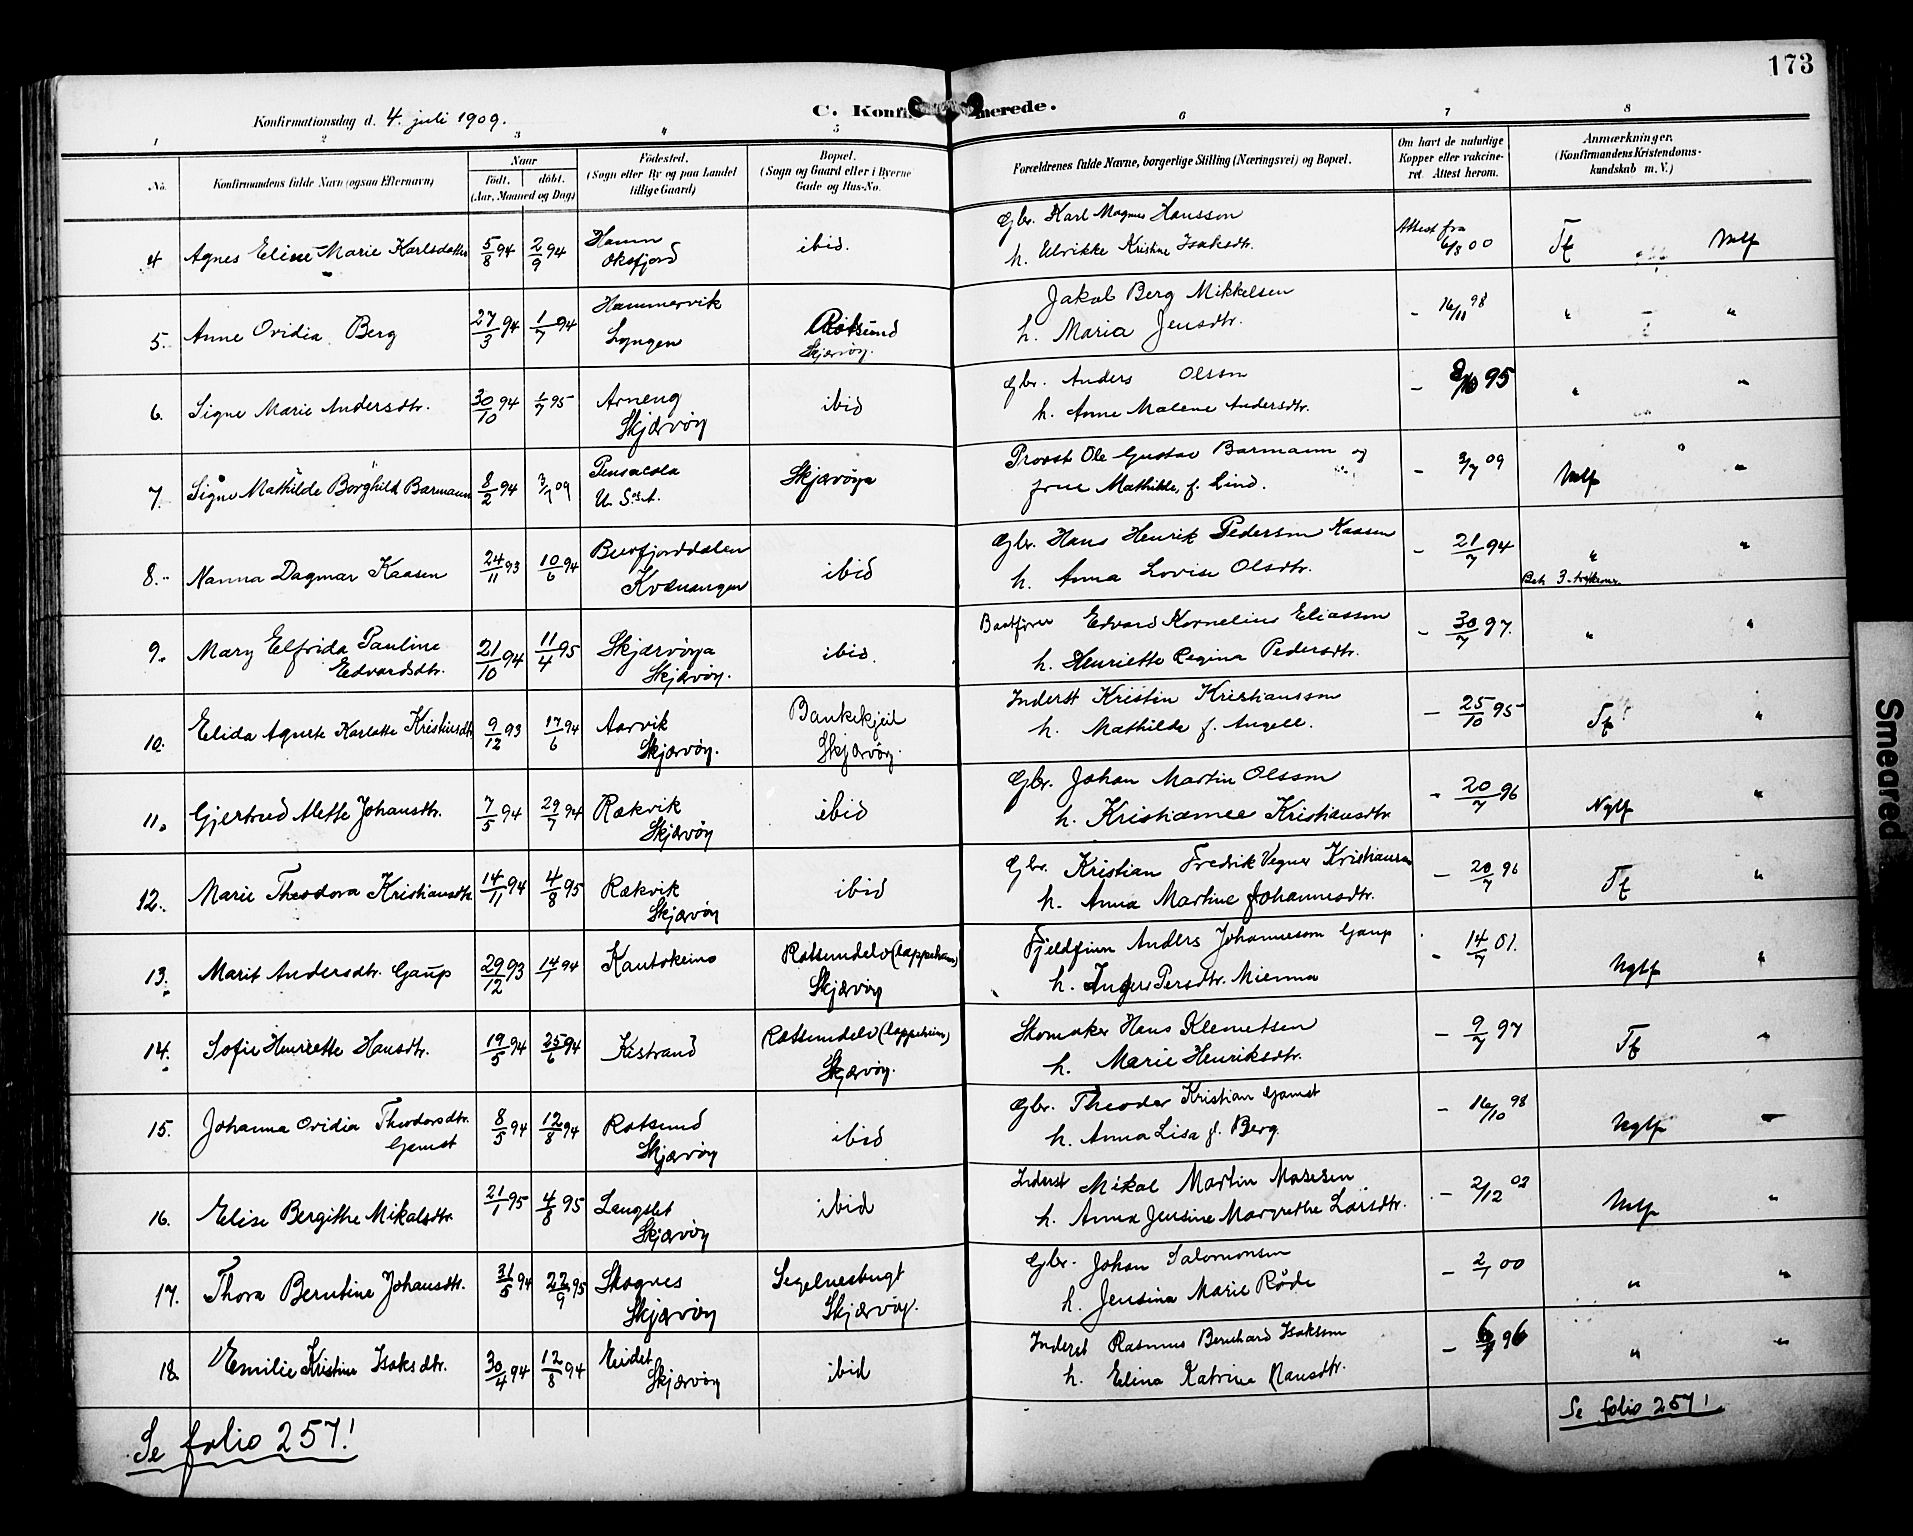 173
Konfirmationsdag d. 4. juli 1909.
C. Konfirmerede.
1 2 3 4 5 6 7 8
No.
Konfirmandens fulde Navn (ogsaa Efternavn)
Naar
født. døbt.
(Aar, Maaned og Dag)
Fødested.
(Sogn eller By og paa Landet
tillige Gaard)
Bopæl.
(Sogn og Gaard eller i Byerne
Gade og Hus-No.
Forældrenes fulde Navne, borgerlige Stilling (Næringsvei) og Bopæl.
Om havt de naturlige
Kopper eller vakcine-
ret. Attest herom.
Anmærkninger.
(Konfirmandens Kristendoms-
kundskab m. V.)
4 Agnes Eline Marie Karlsdatter 5/8 94 2/9 94 Hamn
Oksfjord
ibid.
Gbr. Karl Magnus Hansson
h. Ulrikke Kristine Isaksdtr.
Attest fra
6/8 00
Tf Mlf
5. Anne Ovidia Berg 27/3 94 1/7 94 Hammervik
Lyngen
Rotsund
Skjærvøy.
Jakob Berg Mikkelsen
h. Maria Jensdtr.
- 16/11 98 " "
6. Signe Marie Andersdtr. 30/10 94 1/7 95 Arneng
Skjærvøy
ibid
Gbr. Anders Olsson
h. Anne Malene Andersdtr.
- 8/10 95 " "
7. Signe Mathilde Borghild Barmann 8/2 94 3/7 09 Pensacola
U. S. A.
Skjærvøya
Provst Ole Gustav Barmann og
frue Mathilde, f. Lind.
- 3/7 09 Mlf "
8. Nanna Dagmar Kaasen 24/11 93 10/6 94 Burfjorddalen
Kvænangen
ibid
Gbr. Hans Henrik Pederson Kaasen
h. Anna Lovise Olsdtr.
- 21/7 94 " "
9. Mary Elfrida Pauline
Edvardsdtr.
21/10 94 11/4 95 Skjærvøya
Skjærvøy.
ibid.
Baatfører Edvard Kornelius Eliasson
h. Henriette Regina Pedersdtr.
- 30/7 97. " "
10. Elida Agnete Karlotte Kristinsdtr 9/12 93 17/6 94 Aarvik
Skjærvøy.
Bankekjeil
Skjærvøy.
Inderst Kristin Kristiansson
h. Mathilde f. Angell.
- 25/10 95 Tf "
11. Gjertrud Alette Johansdtr. 7/5 94 29/7 94 Rækvik
Skjærvøy
ibid
Gbr. Johan Martin Olsson
h. Kristianne Kristiansdtr
- 20/7 96 Nglf "
12. Marie Theodora Kristiansdtr 14/11 94 4/8 95 Rækvik
Skjærvøy
ibid
Gbr. Kristian Fredrik Vegner Kristiansen
h. Anna Martine Johannesdtr.
- 20/7 96 Tf "
13. Marit Andersdtr. Gaup 29/12 93 14/1 94 Kautokeino
Rotsundelv (lappeheim)
Skjærvøy
Fjeldfinn Anders Johannesson Gaup
h. Inger Persdtr. Mienna
- 14/7 01. Nglf "
14. Sofie Henriette Hansdtr. 19/5 94 25/6 94 Kistrand
Rotsundelv (lappeheim)
Skjærvøy.
Skomaker Hans Klemetsen
h. Marie Henriksdtr.
- 9/7 97 Tf "
15. Johanna Ovidia Theodorsdtr.
Gamst
8/5 94 12/8 94 Rotsund
Skjærvøy
ibid
Gbr. Theodor Kristian Gamst
h. Anna Lisa f. Berg.
- 16/10 98 Nglf -
16. Elise Bergithe Mikalsdtr. 21/1 95 4/8 95 Langslet
Skjærvøy
ibid
Inderst Mikal Martin Mosesen
h. Anna Jensine Margrethe Larsdtr.
- 2/12 02 Mlf "
17. Thora Berntine Johansdtr. 31/5 94 22/9 95 Skognes
Skjærvøy
Segelnesbugt
Skjærvøy.
Gbr. Johan Salomonsen
h. Jensina Marie Røde
- 2/1 00 " "
18. Emilie Kristine Isaksdtr. 30/4 94 12/8 94 Eidet
Skjærvøy
ibid
Inderst Rasmus Bernhard Isaksson
h. Elina Katrine Hansdtr.
- 6/7 96 " "
Se folio 257!
Se folio 257!
Smeared